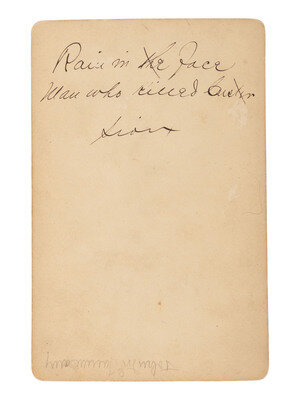 Rain in the Face
Man who killed Custer
Sioux